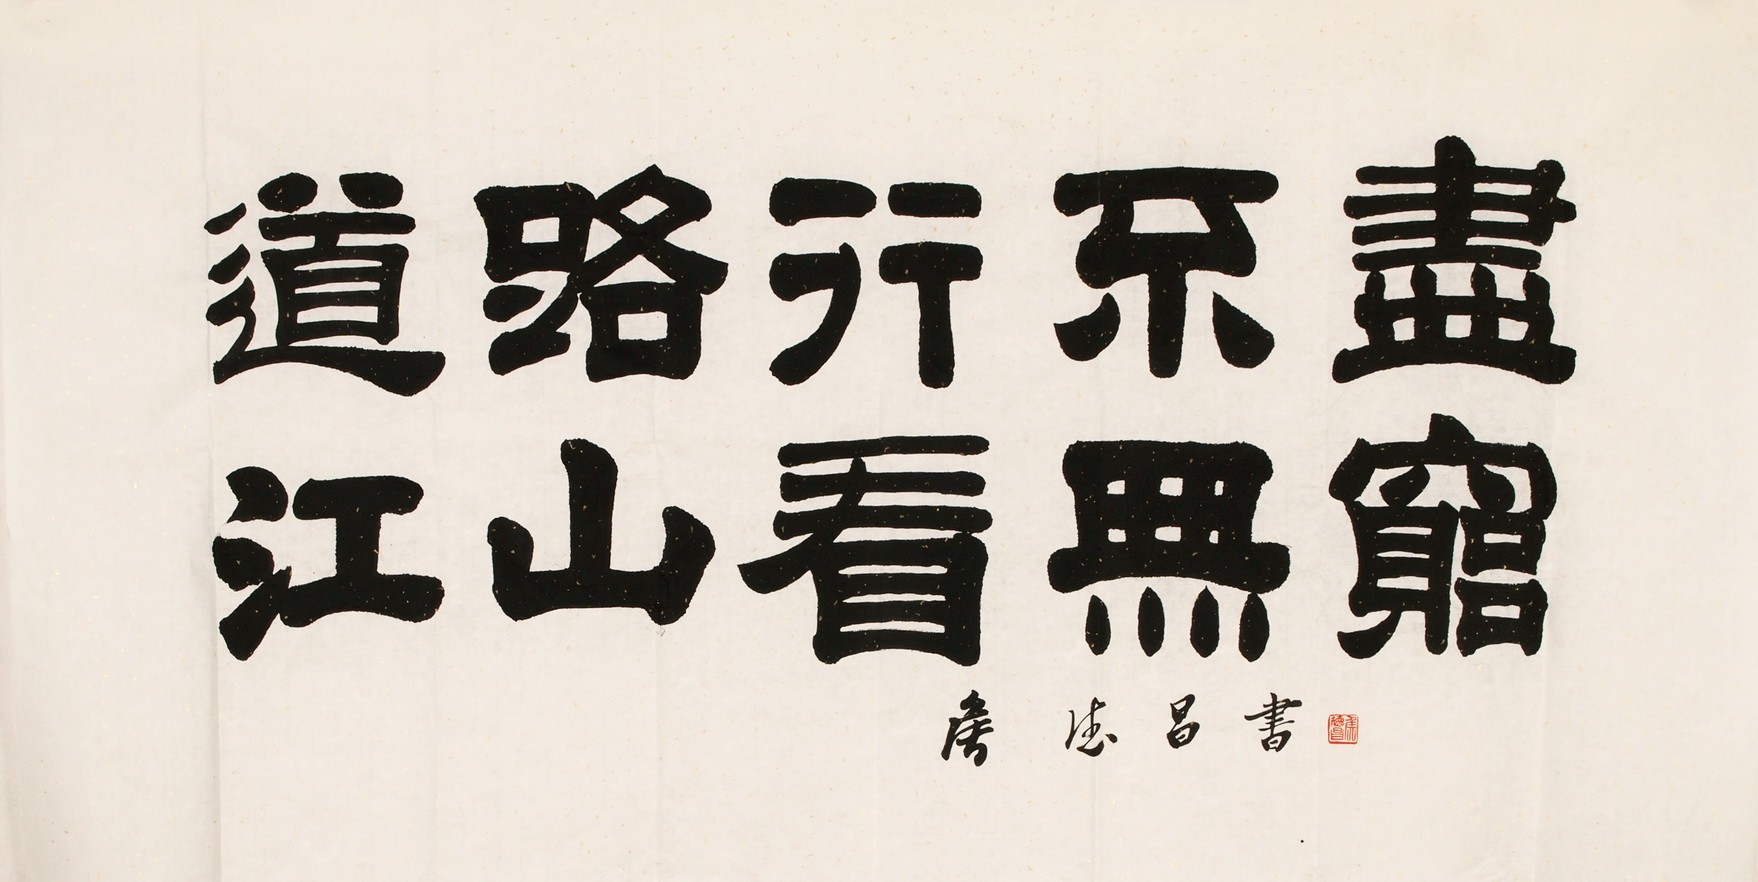 道路行不盡
江山看無窮
詹德昌書